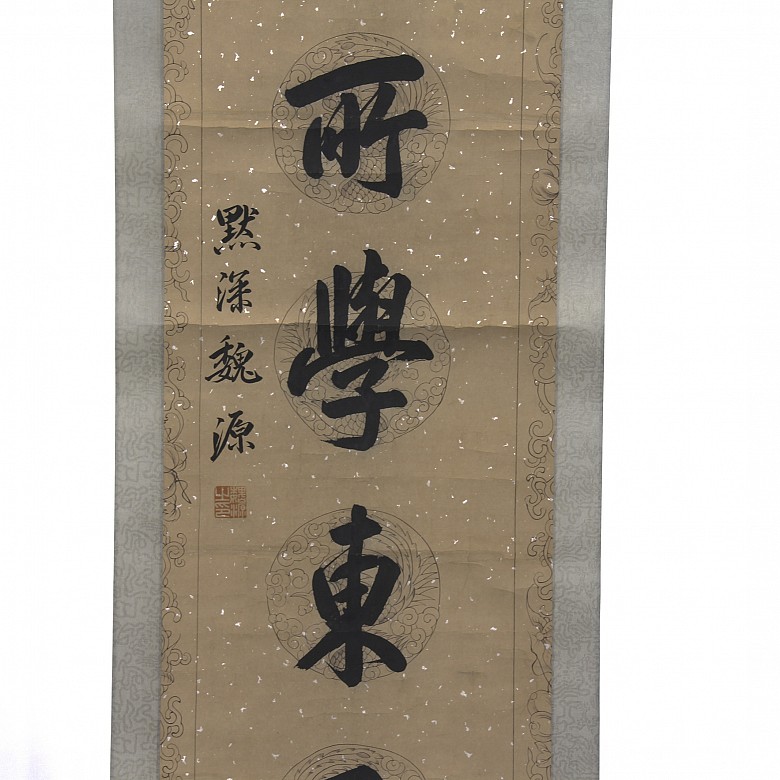 所學東
默深魏源